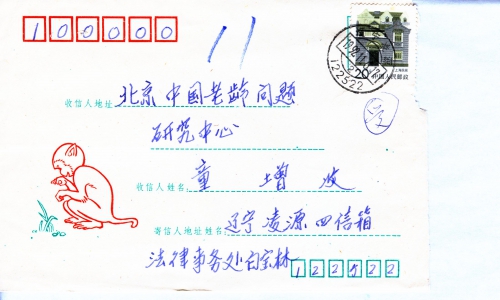 100000
收信人地址 北京 中国老龄问题
研究中心
收信人姓名 童增 收
寄信人地址姓名 辽宁凌源四信箱
法律事务处白宝林
122522
20
中国人民邮政
122522